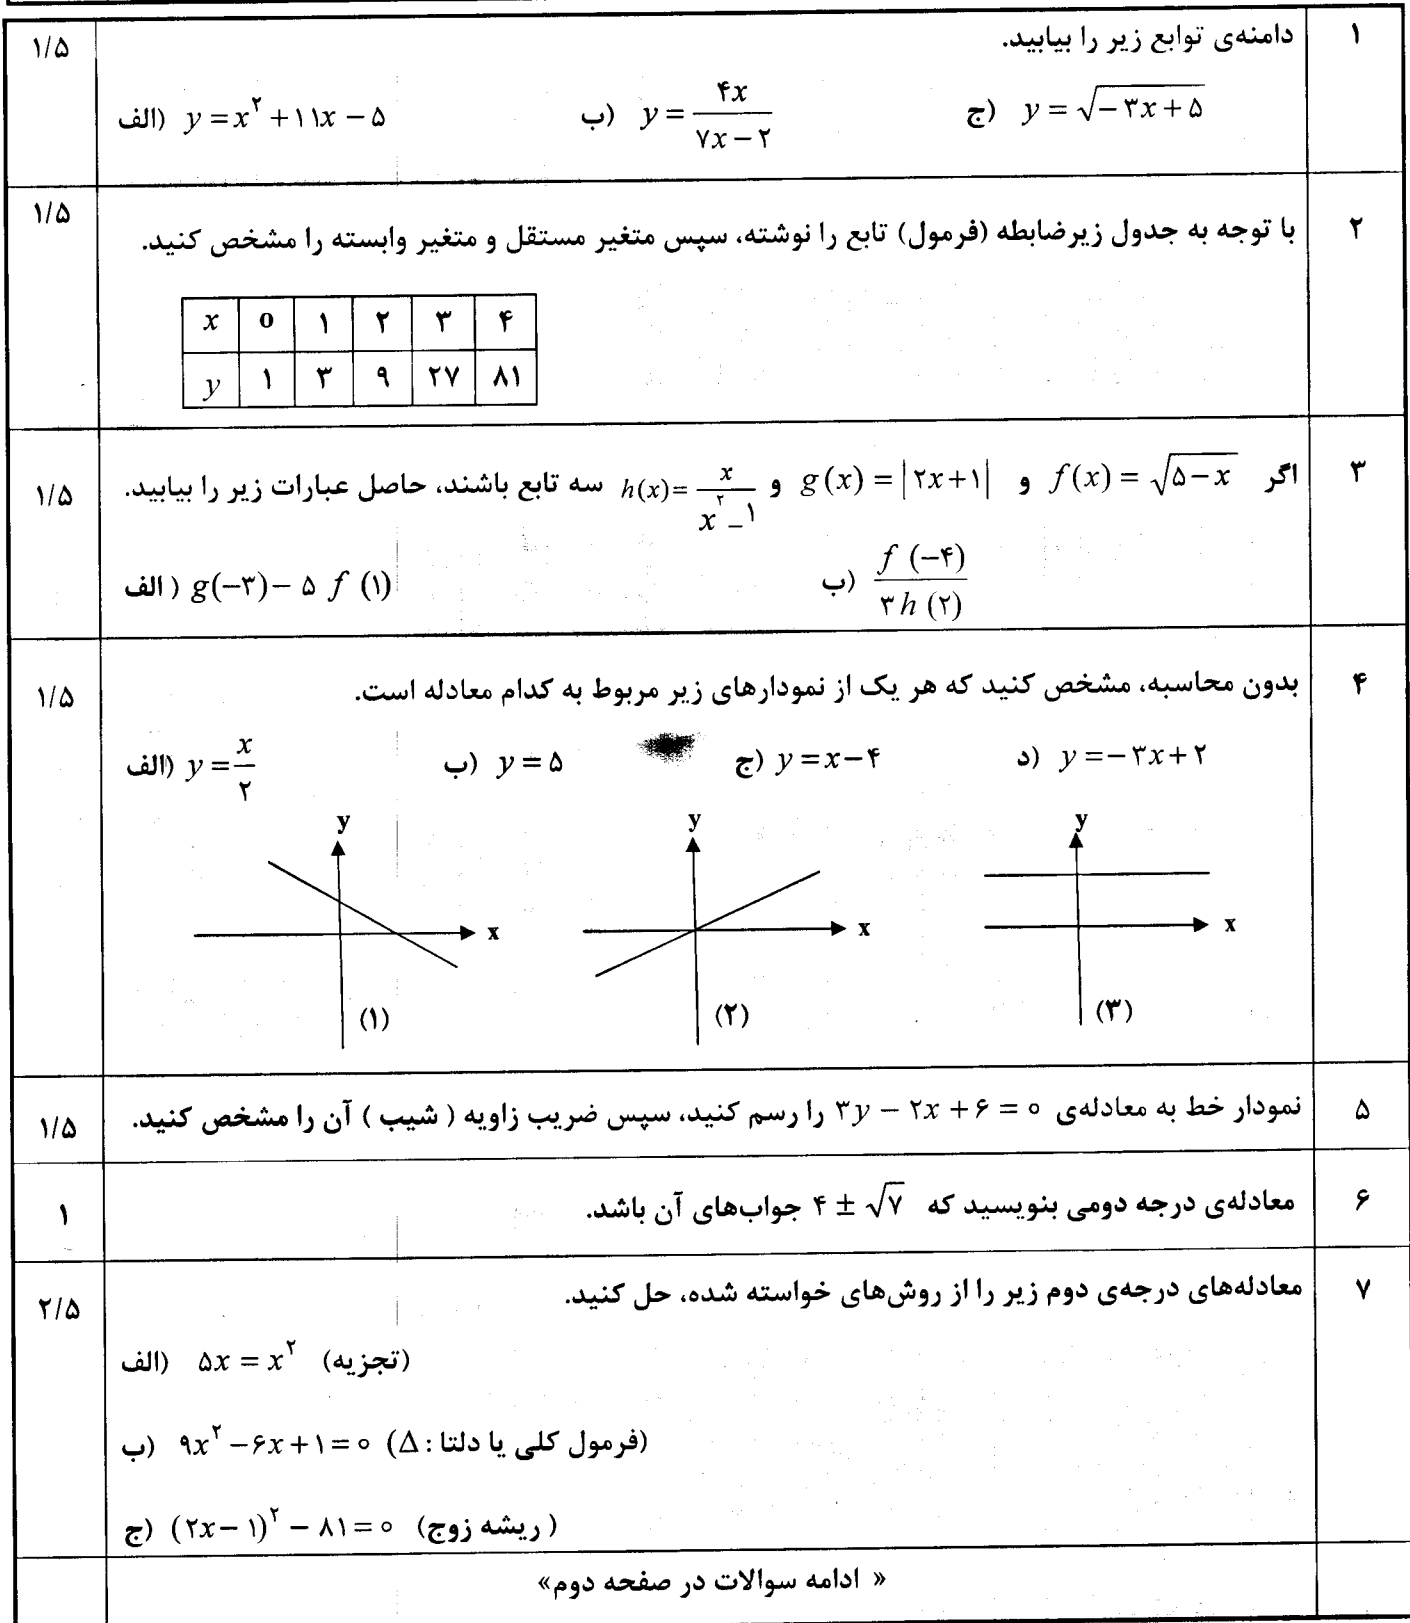 ۱ دامنه‌ی توابع زیر را بیابید. ۱/۵
الف) y = x^۲ + ۱۱x − ۵ ب) y = ۴x / (۷x − ۲) ج) y = √(−۳x + ۵)
۲ با توجه به جدول زیرضابطه (فرمول) تابع را نوشته، سپس متغیر مستقل و متغیر وابسته را مشخص کنید. ۱/۵
x ۰ ۱ ۲ ۳ ۴
y ۱ ۳ ۹ ۲۷ ۸۱
۳ اگر f(x) = √(۵−x) و g(x) = |۲x+۱| و h(x) = x / (x^۲ − ۱) سه تابع باشند، حاصل عبارات زیر را بیابید. ۱/۵
الف) g(−۳) − ۵ f (۱) ب) f (−۴) / ۳ h (۲)
۴ بدون محاسبه، مشخص کنید که هر یک از نمودارهای زیر مربوط به کدام معادله است. ۱/۵
الف) y = x/۲ ب) y = ۵ ج) y = x − ۴ د) y = −۳x + ۲
y y y
x x x
(۱) (۲) (۳)
۵ نمودار خط به معادله‌ی ۳y − ۲x + ۶ = ۰ را رسم کنید، سپس ضریب زاویه ( شیب ) آن را مشخص کنید. ۱/۵
۶ معادله‌ی درجه دومی بنویسید که ۴ ± √۷ جواب‌های آن باشد. ۱
۷ معادله‌های درجه‌ی دوم زیر را از روش‌های خواسته شده، حل کنید. ۲/۵
الف) ۵x = x^۲ (تجزیه)
ب) ۹x^۲ − ۶x + ۱ = ۰ (فرمول کلی یا دلتا : Δ)
ج) (۲x − ۱)^۲ − ۸۱ = ۰ ( ریشه زوج)
« ادامه سوالات در صفحه دوم»